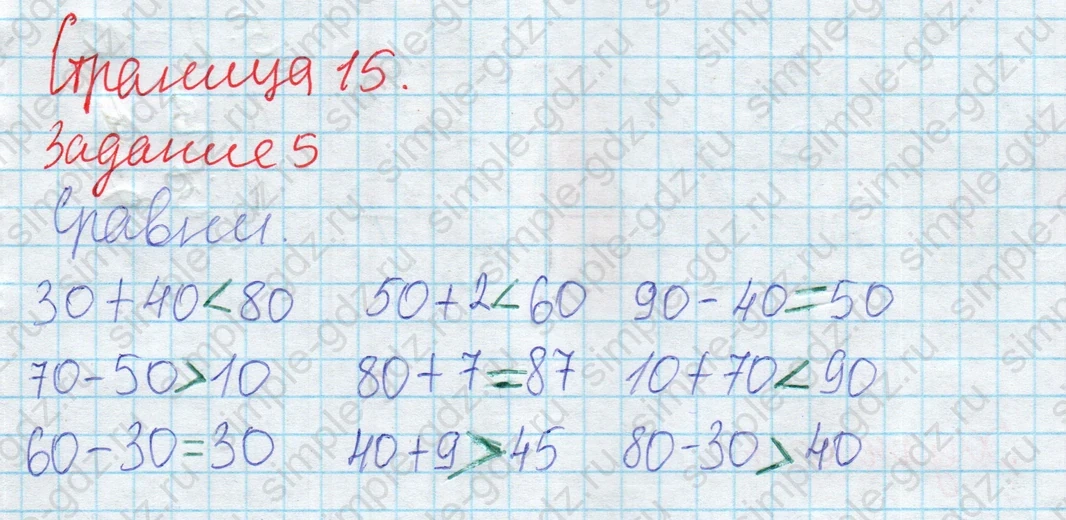 Страница 15.
Задание 5
Сравни.
30 + 40 < 80 50 + 2 < 60 90 - 40 = 50
70 - 50 > 10 80 + 7 = 87 10 + 70 < 90
60 - 30 = 30 40 + 9 > 45 80 - 30 > 40
simple-gdz.ru